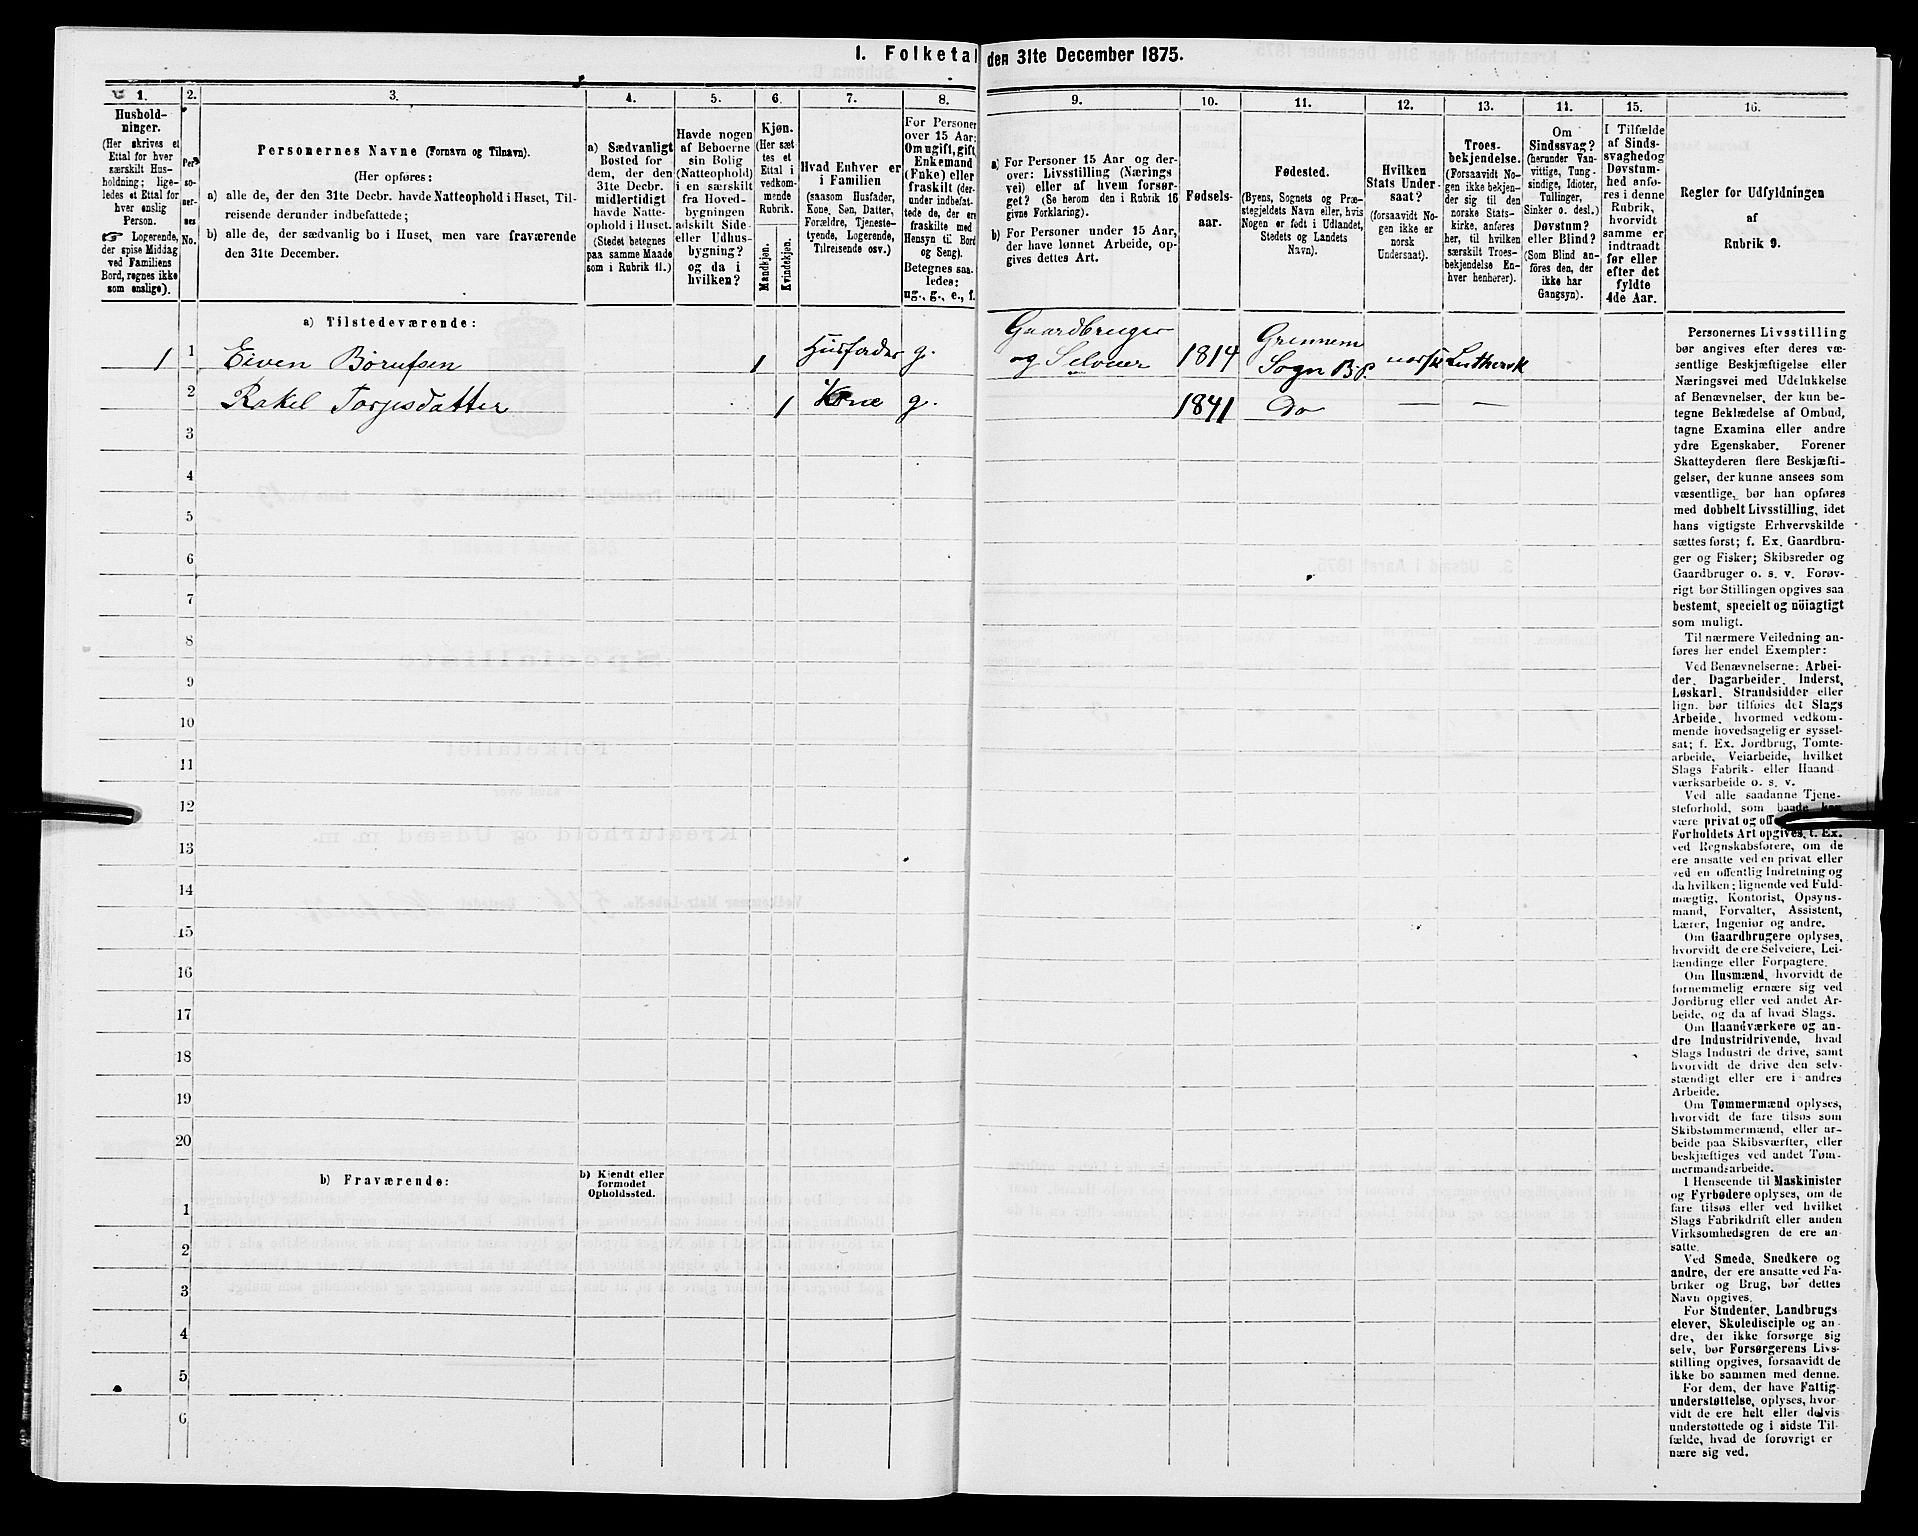 1. Folketal den 31te December 1875.
1.
Hushold-
ninger.
(Her skrives et
Ettal for hver
særskilt Hus-
holdning; lige-
ledes et Ettal for
hver enslig
Person.
☞ Logerende,
der spise Middag
ved Familiens
Bord, regnes ikke
som enslige).
2.
Per-
so-
ner-
nes
No.
3.
Personernes Navne (Fornavn og Tilnavn).
(Her opføres:
a) alle de, der den 31te Decbr. havde Natteophold i Huset, Til-
reisende derunder indbefattede;
b) alle de, der sædvanlig bo i Huset, men vare fraværende
den 31te December.
4.
a) Sædvanligt
Bosted for
dem, der den
31te Decbr.
midlertidigt
havde Natte-
ophold i Huset.
(Stedet betegnes
paa samme Maade
som i Rubrik 11.)
5.
Havde nogen
af Beboerne
sin Bolig
(Natteophold)
i en særskilt
fra Hoved-
bygningen
adskilt Side-
eller Udhus-
bygning?
og da i
hvilken?
6.
Kjøn.
(Her sæt-
tes et
Ettal i
vedkom-
mende
Rubrik.
Mandkjøn.
Kvindekjøn.
7.
Hvad Enhver er
i Familien
(saasom Husfader,
Kone, Søn, Datter,
Forældre, Tjeneste-
tyende, Logerende,
Tilreisende osv.)
8.
For Personer
over 15 Aar:
Om ugift, gift,
Enkemand
(Enke) eller
fraskilt (der-
under indbefat-
tede de, der ere
fraskilte med
Hensyn til Bord
og Seng).
Betegnes saa-
ledes:
ug., g., e., f.
9.
a) For Personer 15 Aar og der-
over: Livsstilling (Nærings
vei) eller af hvem forsør-
get? (Se herom i Rubrik 16
givne Forklaring).
b) For Personer under 15 Aar,
der have lønnet Arbeide, op-
gives dettes Art.
10.
Fødsels-
aar.
11.
Fødested.
(Byens, Sognets og Præ-
stegjeldets Navn eller, hvis
Nogen er født i Udlandet,
Stedets og Landets
Navn).
12.
Hvilken
Stats Under-
saat?
(forsaavidt No-
gen ikke er
norsk
Undersaat).
13.
Troes-
bekjendelse.
(Forsaavidt No-
gen ikke bekjen-
der sig til den
norske Stats-
kirke, anføres
her, til hvilken
særskilt Troes-
bekjendelse En-
hver henhører).
14.
Om
Sindssvag?
(herunder Van-
vittige, Tung-
sindige, Idioter,
Tullinger,
Sinker o. desl.)
Døvstum?
eller Blind?
(Som Blind an-
føres den, der
ikke har
Gangsyn).
15.
I Tilfælde
af Sinds-
svaghed og
Døvstum-
hed anfø-
res i denne
Rubrik,
hvorvidt
samme er
indtraadt
før eller
efter det
fyldte
4de Aar.
16.
Regler for Udfyldningen
af
Rubrik 9.
a) Tilstedeværende:
1 1 Eiven Børufsen 1 Husfader g. Gaardbruger og Selveier 1814 Sogn B.P. norsk Luthersk
2 Rakel Torjesdatter 1 Kone g. 1841 Do — —
3
4
5
6
7
8
9
10
11
12
13
14
15
16
17
18
19
20
b) Fraværende:
b) Kjendt eller
formodet
Opholdssted.
1
2
3
4
5
6
Personernes Livsstilling
bør angives efter deres væ-
sentlige Beskjæftigelse eller
Næringsvei med Udelukkelse
af Benævnelser, der kun be-
tegne Beklædelse af Ombud,
tagne Examina eller andre
ydre Egenskaber. Forener
Skatteyderen flere Beskjæfti-
gelser, der kunne ansees som
væsentlige, bør han opføres
med dobbelt Livsstilling, idet
hans vigtigste Erhvervskilde
sættes først; f. Ex. Gaardbru-
ger og Fisker; Skibsreder og
Gaardbruger o. s. v. Forøv-
rigt bør Stillingen opgives saa
bestemt, specielt og nöiagtigt
som muligt.
Til nærmere Veiledning an-
føres her endel Exempler:
Ved Benævnelserne: Arbei-
der, Dagarbeider, Inderst,
Løskarl, Strandsidder eller
lign. bør tilføies det Slags
Arbeide, hvormed vedkom-
mende hovedsagelig er syssel-
sat; f. Ex. Jordbrug, Tomte-
arbeide, Veiarbeide, hvilket
Slags Fabrik- eller Haand
værksarbeide o. s. v.
Ved alle saadanne Tjene-
steforhold, som baade kan
være privat og off
Forholdets Art opgives, f. Ex.
ved Regnskabsførere, om de
ere ansatte ved en privat eller
ved en offentlig Indretning og
da hvilken; lignende ved Fuld-
mægtig, Kontorist, Opsyns-
mand, Forvalter, Assistent,
Lærer, Ingeniør og andre.
Om Gaardbrugere oplyses,
hvorvidt de ere Selveiere, Lei-
lændinge eller Forpagtere.
Om Husmænd, hvorvidt de
fornemmelig ernære sig ved
Jordbrug eller ved andet Ar-
beide, og da af hvad Slags.
Om Haandværkere og an-
dre Industridrivende, hvad
Slags Industri de drive, samt
hvorvidt de drive den selv-
stændigt eller ere i andres
Arbeide.
Om Tømmermænd oplyses,
hvorvidt de fare tilsøs som
Skibstømmermænd, eller ar-
beide paa Skibsværfter, eller
beskjæftiges ved andet Tøm-
mermandsarbeide.
I Henseende til Maskinister
og Fyrbødere oplyses, om de
fare tilsøs eller ved hvilket
Slags Fabrikdrift eller anden
Virksomhedsgren de ere an-
satte.
Ved Smede, Snedkere og
andre, der ere ansatte ved Fa-
briker og Brug, bør dettes
Navn opgives.
For Studenter, Landbrugs
elever, Skoledisciple og an-
dre, der ikke forsørge sig
selv, bør Forsørgerens Livs-
stilling opgives, forsaavidt de
ikke bo sammen med denne.
For dem, der have Fattig-
understøttelse, oplyses, hvor-
vidt de ere helt eller delvis
understøttede og i sidste Til-
fælde, hvad de forøvrigt er
nære sig ved.